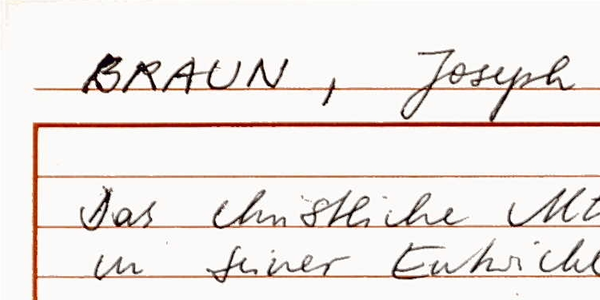 BRAUN, Joseph
Das christliche Alt
in seiner Entwickl